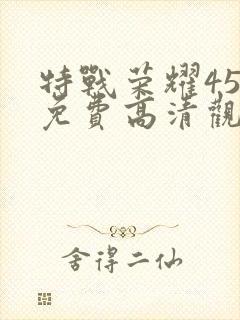 特戰荣耀45
免費高清觀
舍得二仙